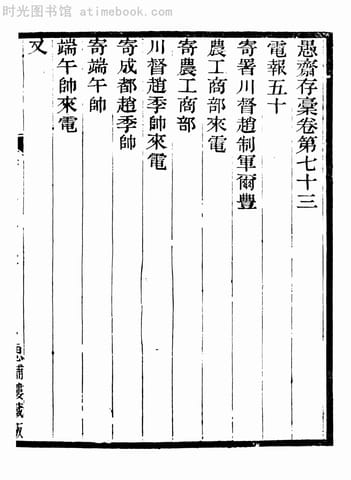 时光图书馆 - atimebook.com
愚齋存稾卷第七十三
電報五十
寄署川督趙制軍爾豐
農工商部來電
寄農工商部
川督趙季帥來電
寄成都趙季帥
寄端午帥
端午帥來電
又
思補樓藏版